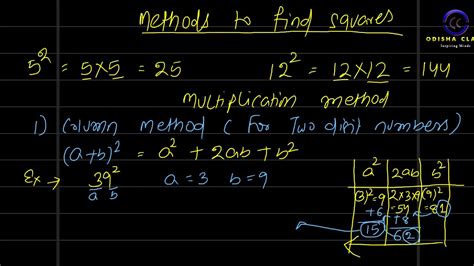 Methods to find squares
ODISHA CLA
Inspiring Minds
5² = 5×5 = 25
12² = 12×12 = 144
Multiplication method
1) Column method ( For Two digit numbers)
(a+b)² = a² + 2ab + b²
Ex → 39² a = 3 b = 9
a b
a² 2ab b²
(3)²=9 2×3×9 (9)²
+6 =54 =81
15 +8
62